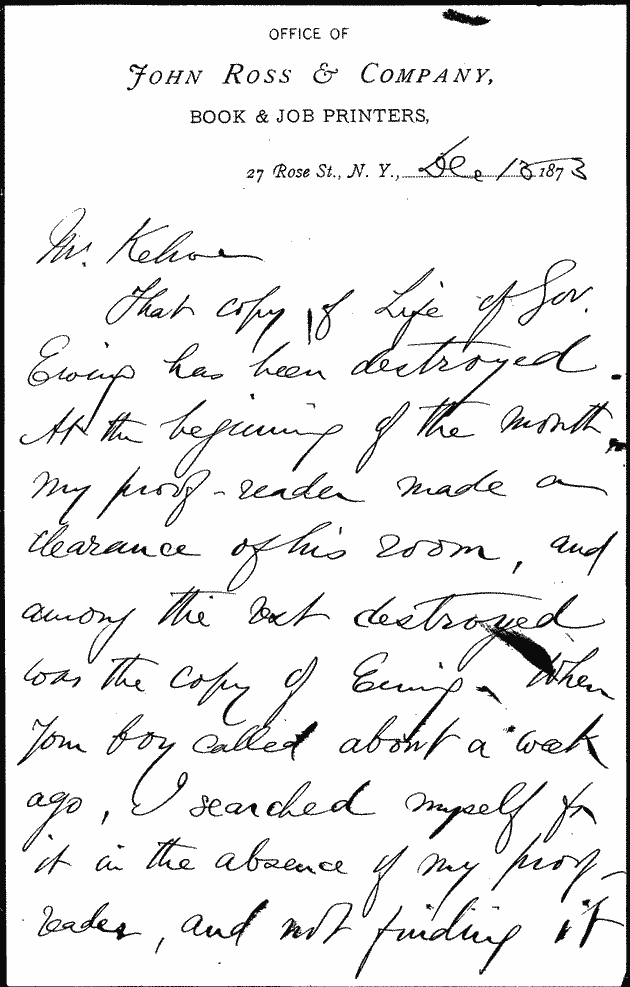 OFFICE OF
JOHN ROSS & COMPANY,
BOOK & JOB PRINTERS,
27 Rose St., N. Y., Dec 13 1873
Mr. Kehoe
That copy of Life of Gov.
Ewing has been destroyed.
At the beginning of the month,
my proof-reader made a
clearance of his room, and
among the rest destroyed
was the copy of Ewing. When
your boy called about a week
ago, I searched myself for
it in the absence of my proof-
reader, and not finding it